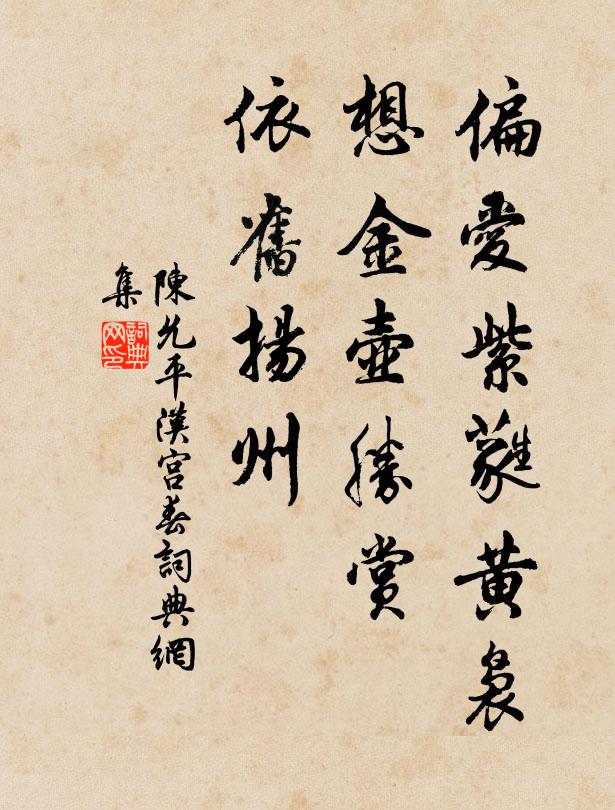 偏愛紫蕤黄裊
想金壺勝賞
依舊揚州
陳允平漢宮春詞典網
集
詞典
网印